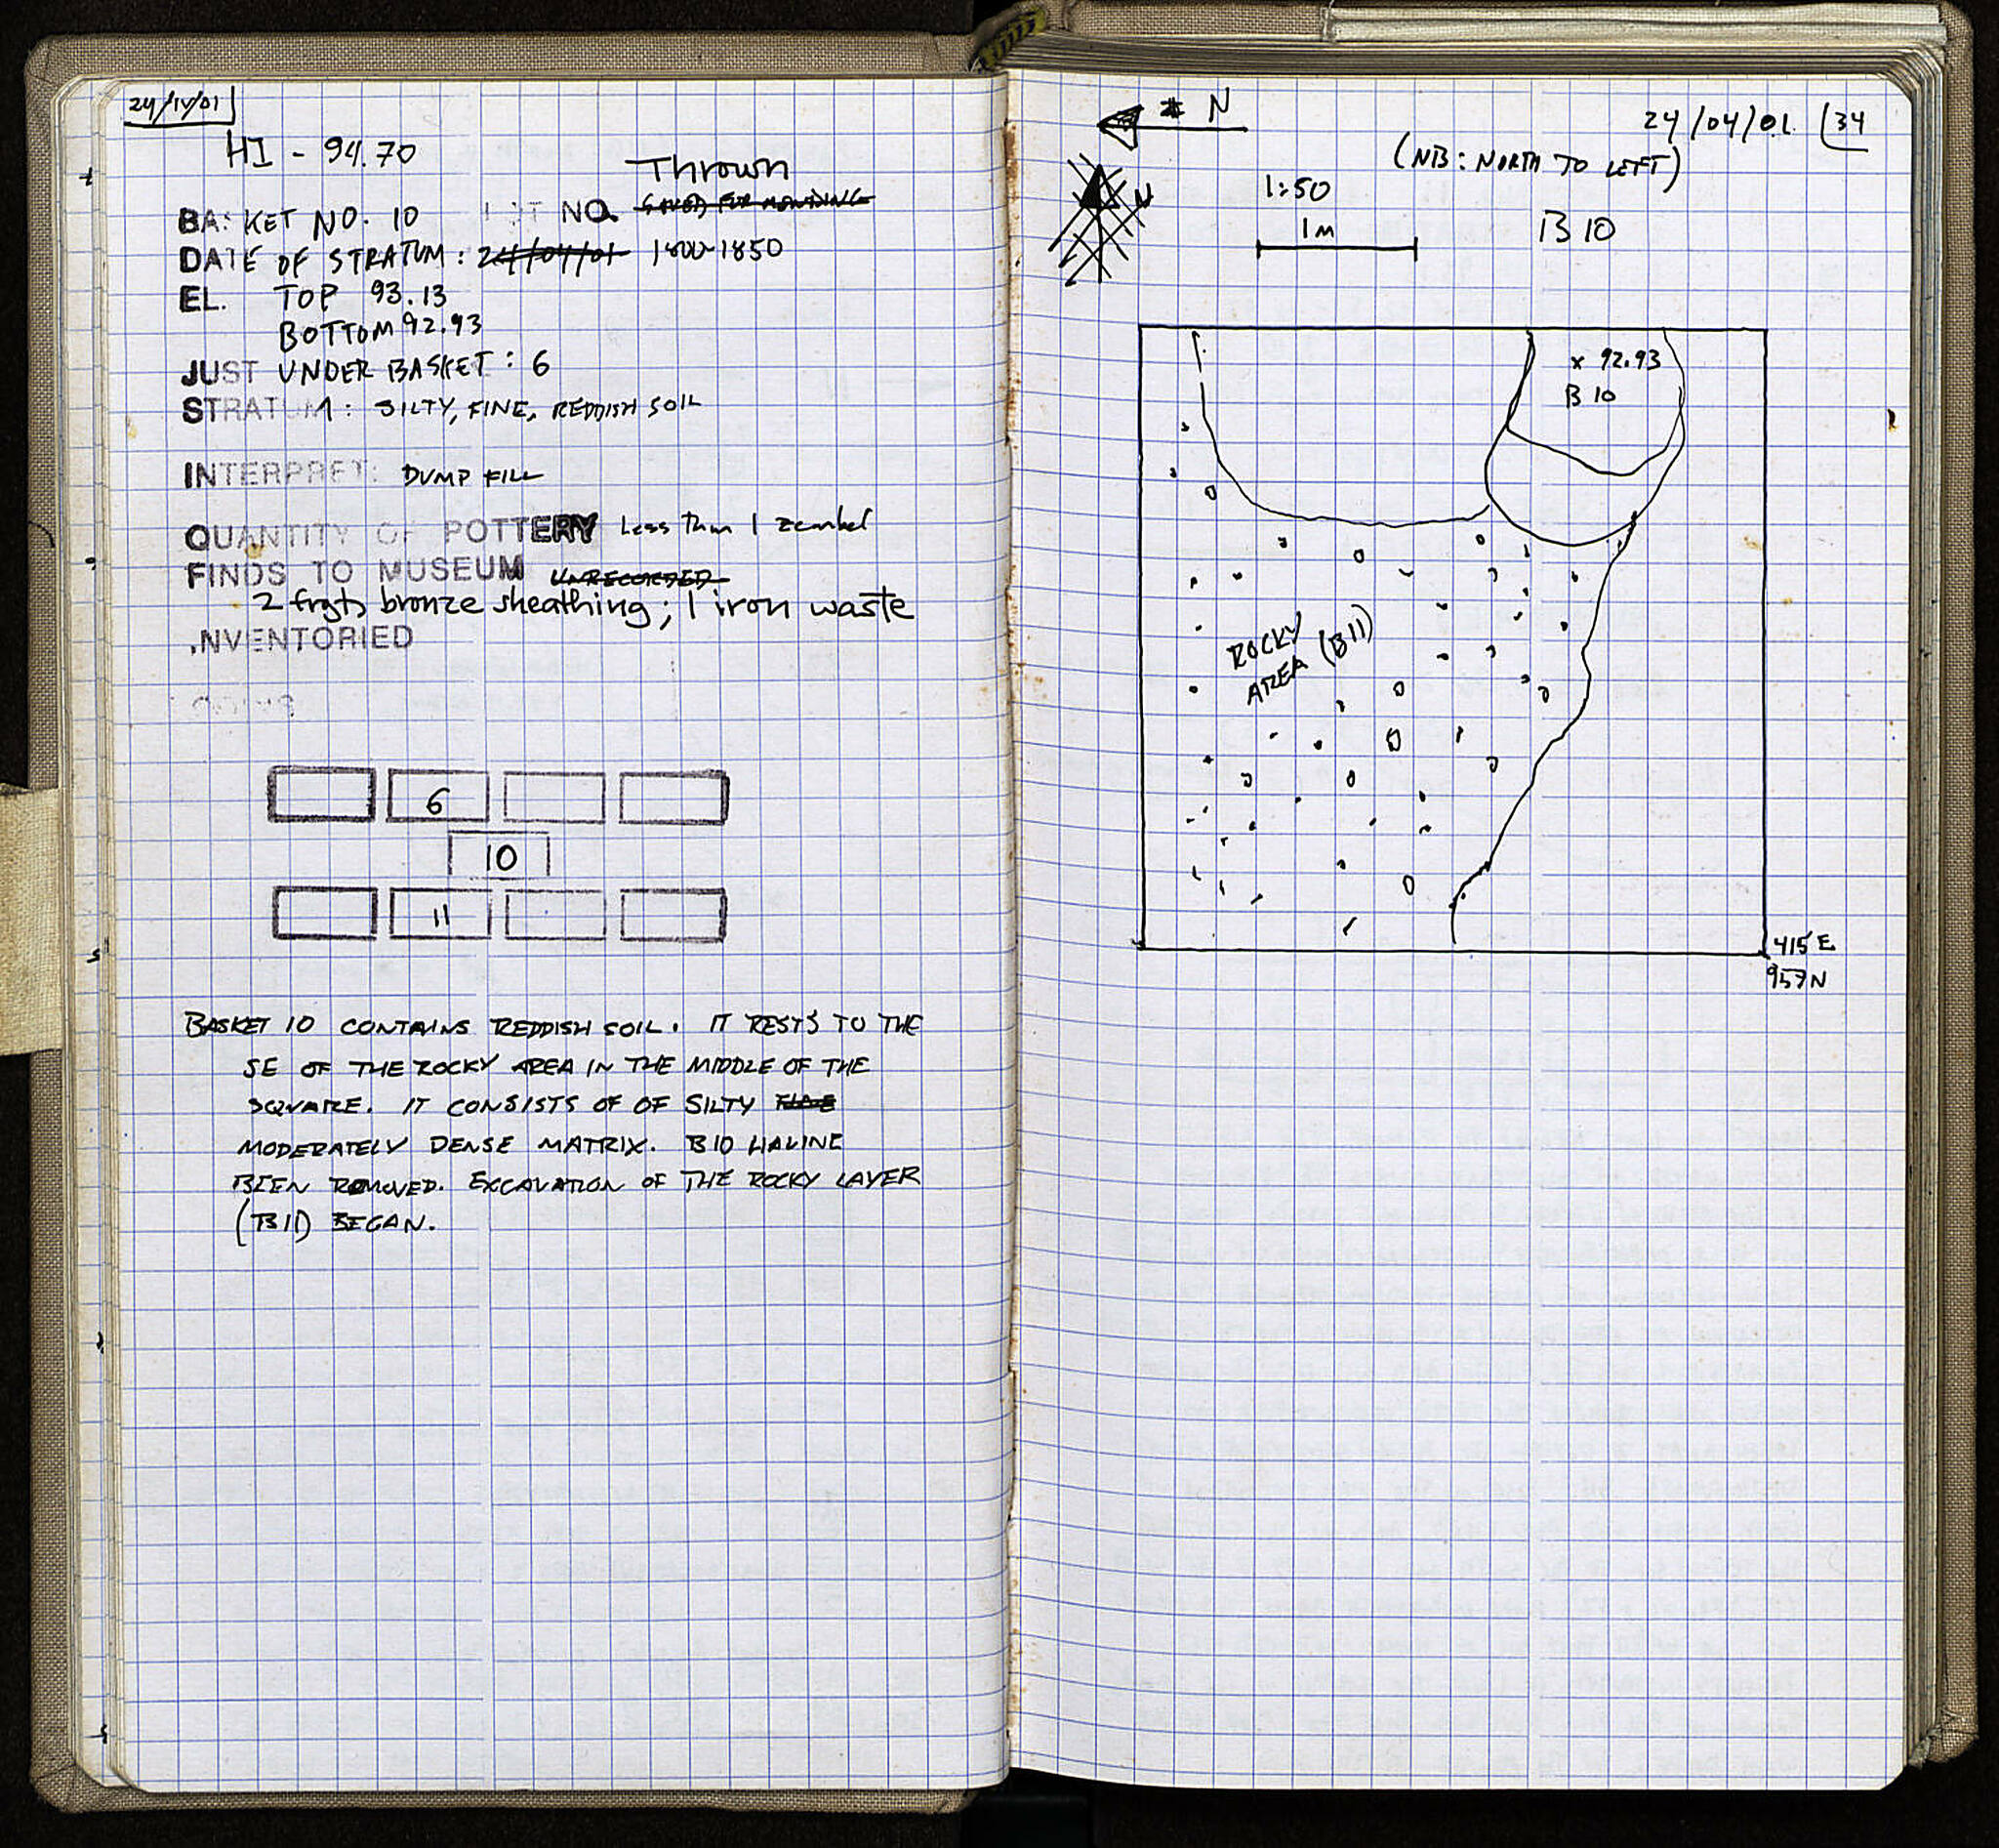 24/IV/01
HI - 94.70
Thrown
BASKET NO. 10 LOT NO. SAVED FOR MENDING
DATE OF STRATUM: 24/04/01 1800-1850
EL. TOP 93.13
BOTTOM 92.93
JUST UNDER BASKET: 6
STRATUM: SILTY, FINE, REDDISH SOIL
INTERPRET: DUMP FILL
QUANTITY OF POTTERY Less than 1 zembel
FINDS TO MUSEUM UNRECORDED
2 frgts bronze sheathing; 1 iron waste
INVENTORIED
COINS
6
10
11
BASKET 10 CONTAINS REDDISH SOIL. IT RESTS TO THE
SE OF THE ROCKY AREA IN THE MIDDLE OF THE
SQUARE. IT CONSISTS OF OF SILTY
MODERATELY DENSE MATRIX. B10 HAVING
BEEN REMOVED. EXCAVATION OF THE ROCKY LAYER
(B11) BEGAN.
N
24/04/01 34
(NB: NORTH TO LEFT)
N
1:50
1M
B 10
x 92.93
B 10
ROCKY
AREA (B11)
415 E
957 N